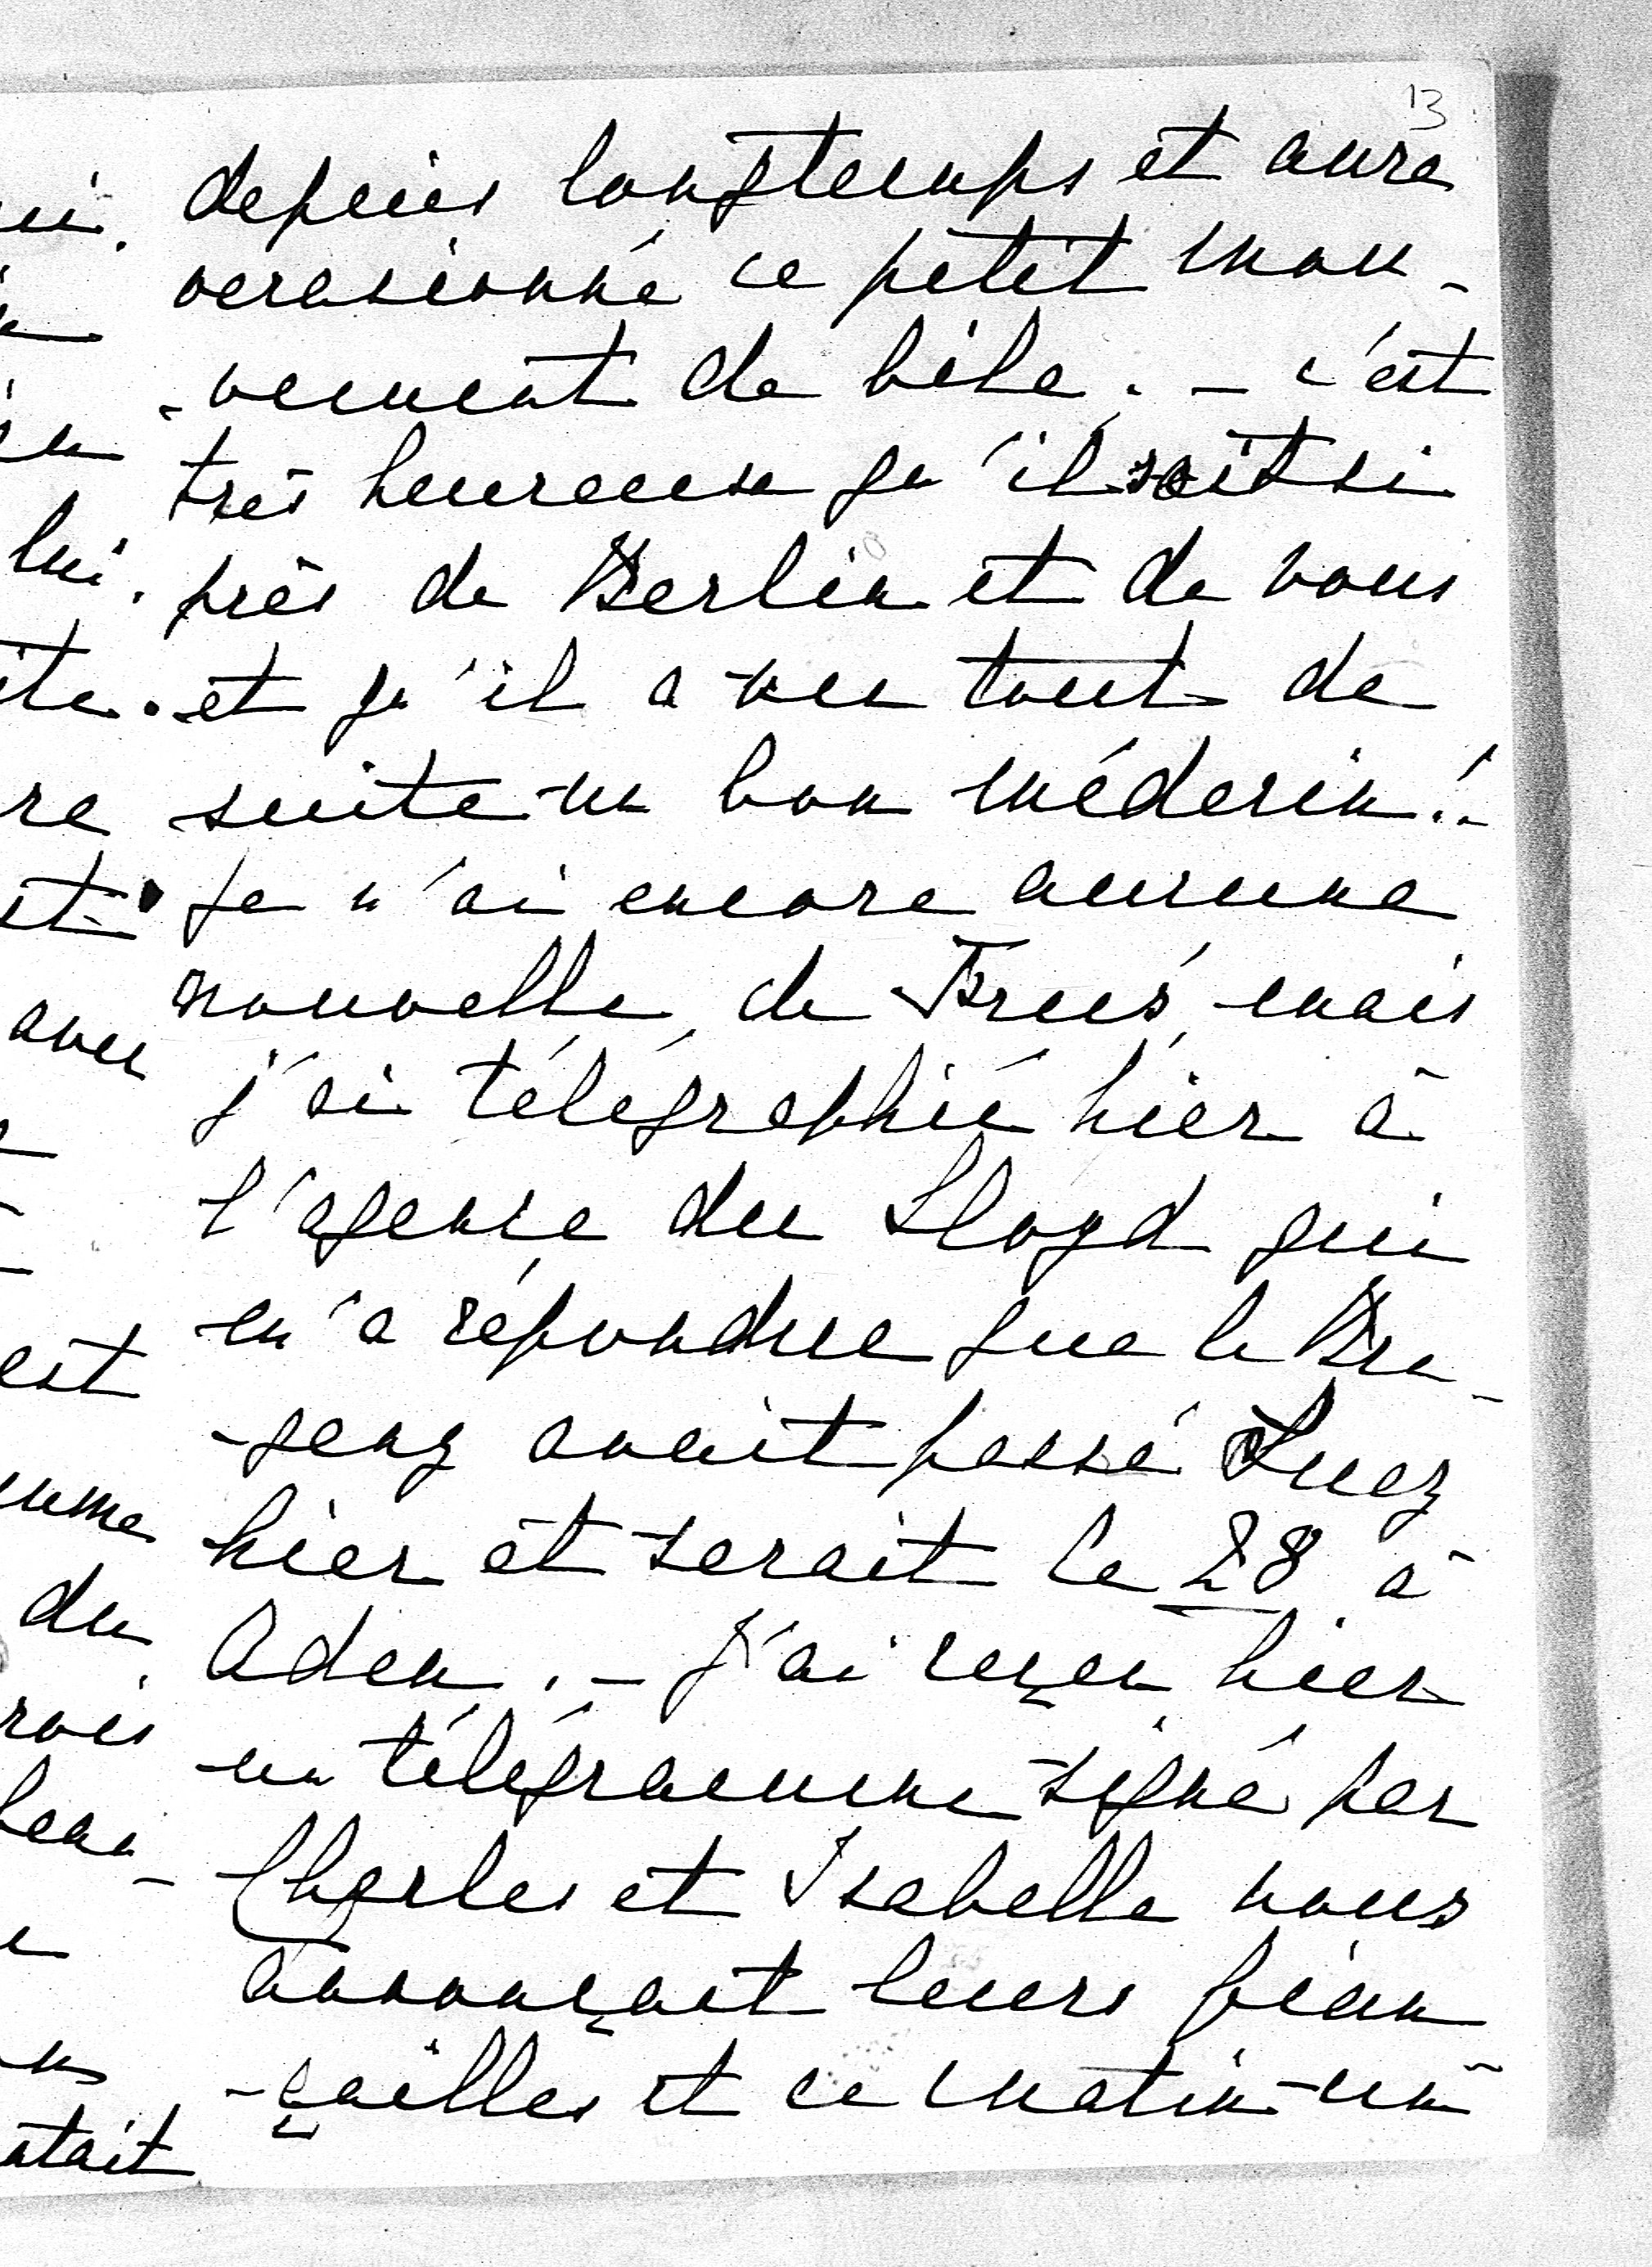 13
depuis longtemps et aura
occasionné ce petit mou-
-vement de bile. - c'est
très heureuse qu'il soit si
près de Berlin et de vous
et qu'il a vu tout de
suite un bon médecin!-
Je n'ai encore aucune
nouvelle de mais
j'ai télégraphié hier à
l'agence du Lloyd qui
m'a répondue que le Bre-
-genz avait passé Suez
hier et serait le 28 à
Aden. - J'ai reçu hier
un télégramme signé par
Charles et Isabelle nous
annonçait leurs fian
-çailles et ce matin un
lui.
est
du
était